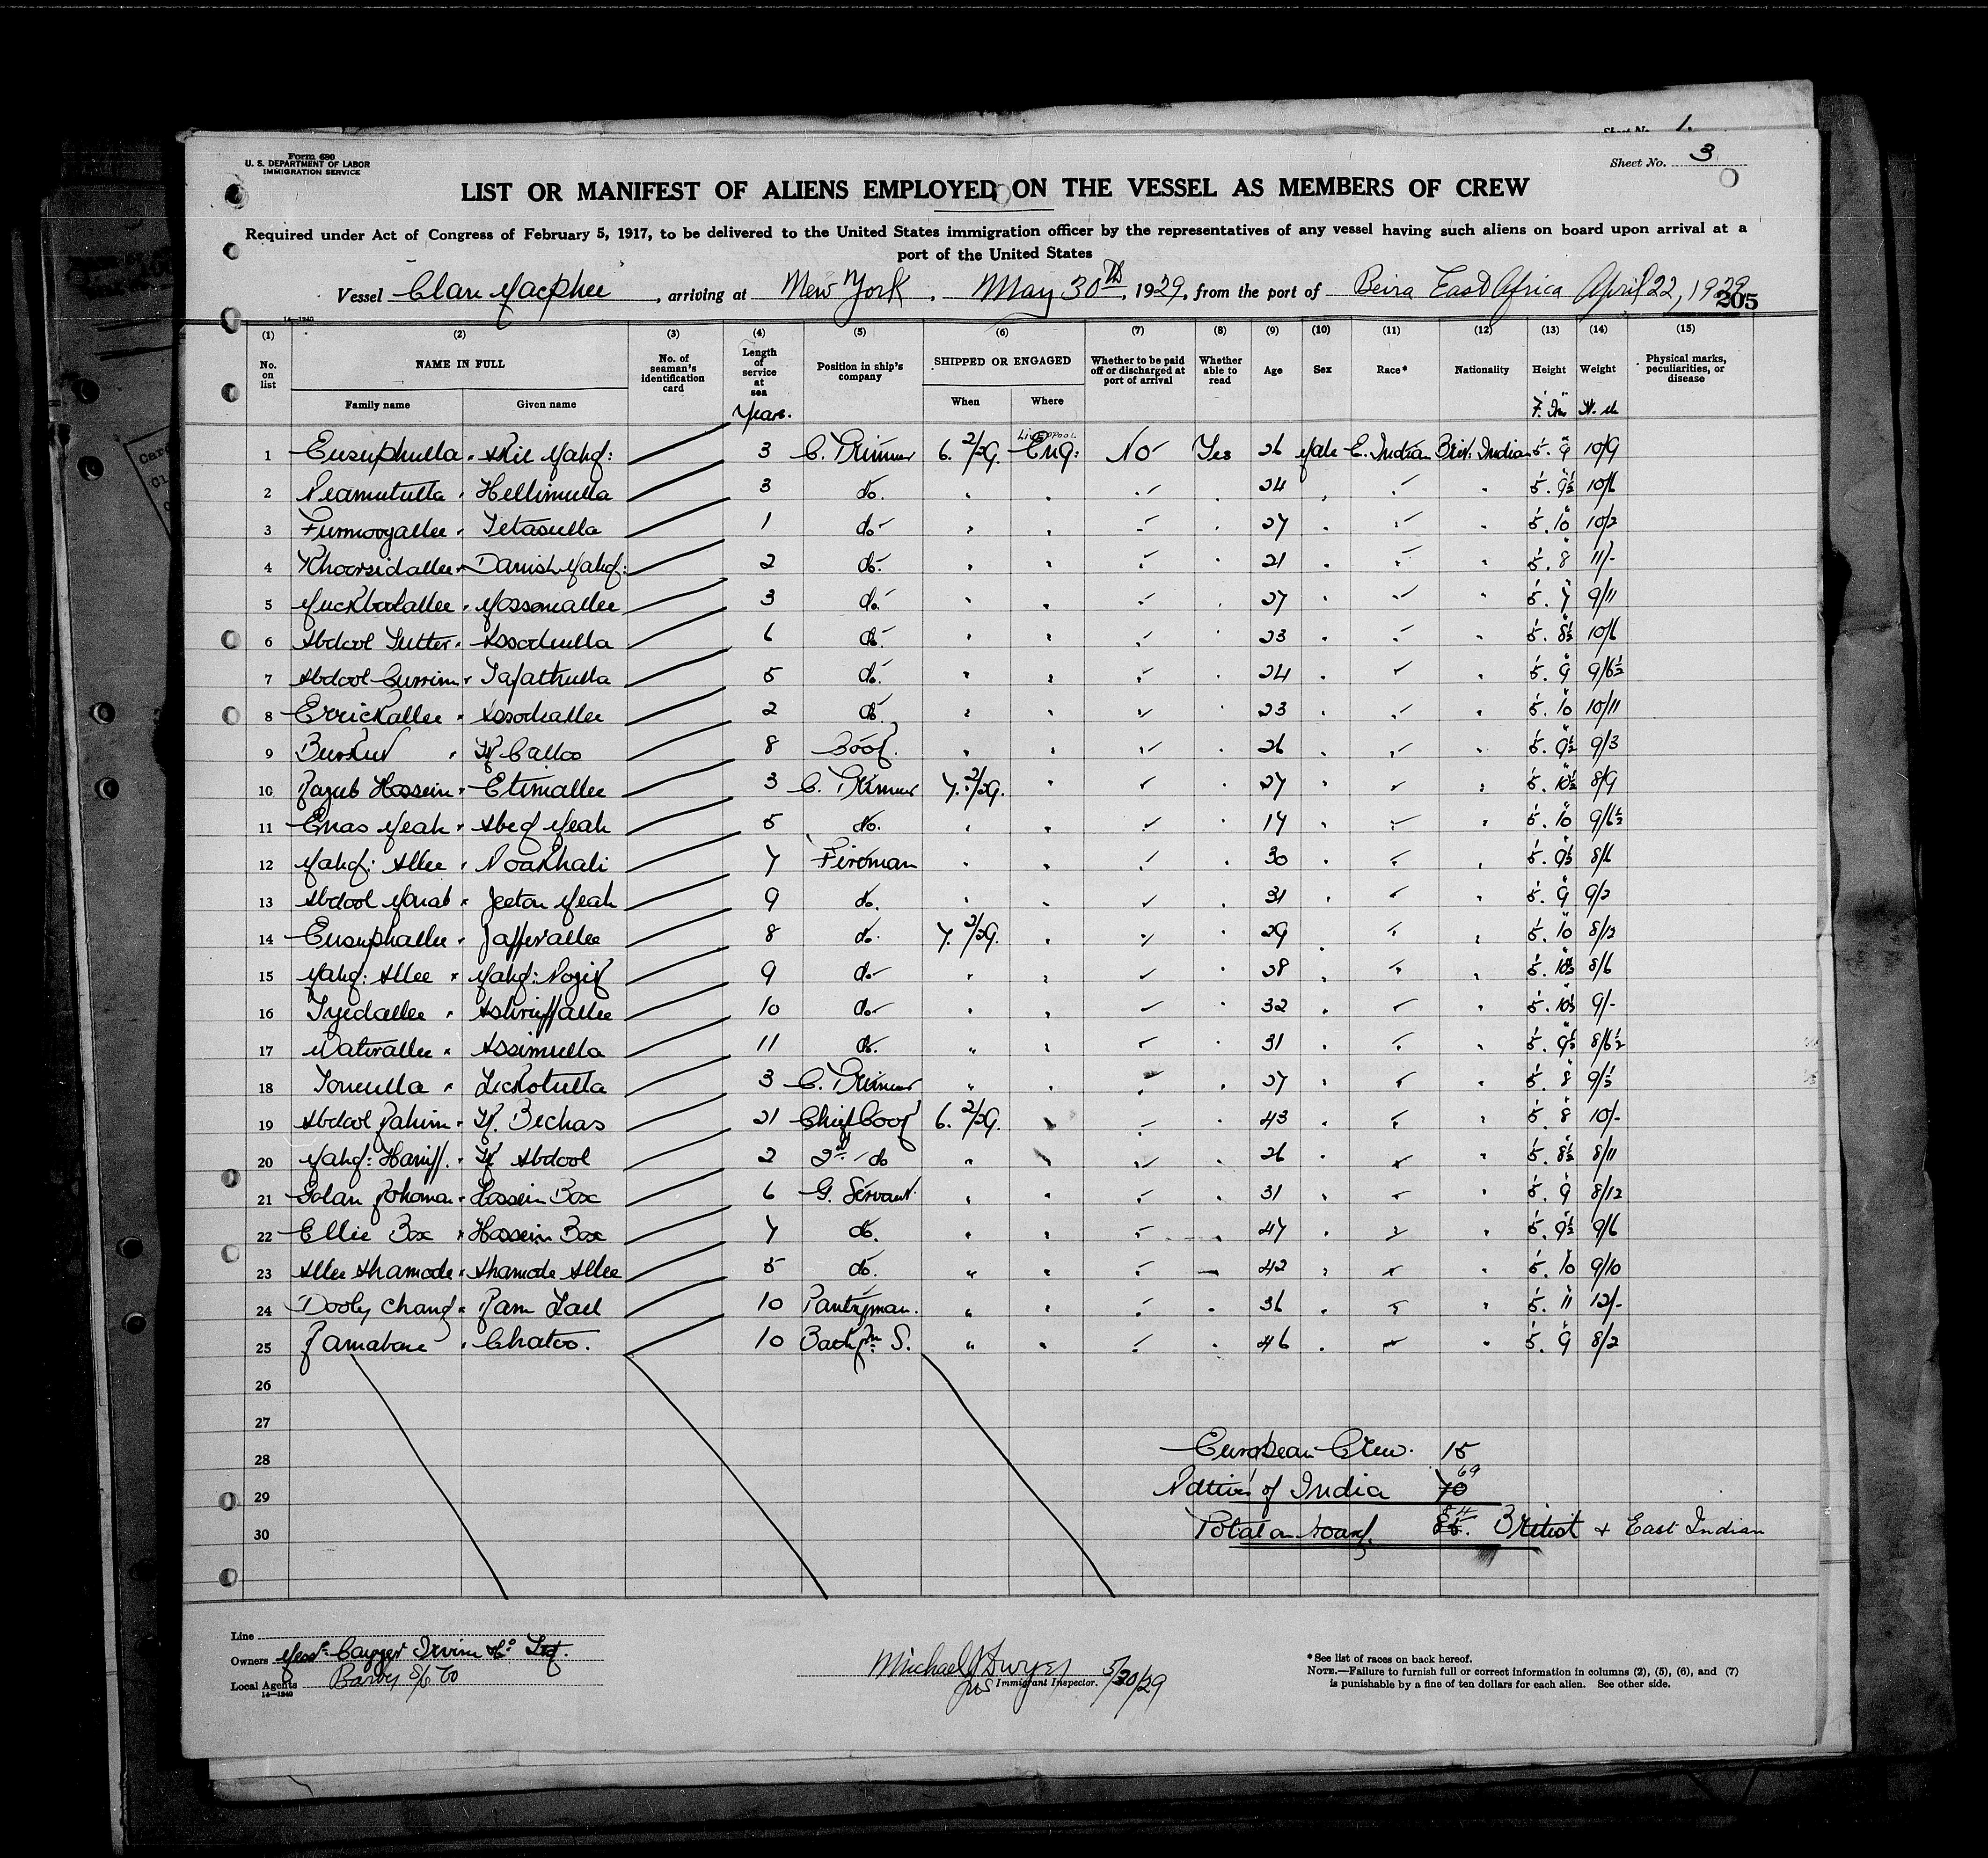 Sheet No. 1.
Form 680
U. S. DEPARTMENT OF LABOR
IMMIGRATION SERVICE
Sheet No. 3
LIST OR MANIFEST OF ALIENS EMPLOYED ON THE VESSEL AS MEMBERS OF CREW
Required under Act of Congress of February 5, 1917, to be delivered to the United States immigration officer by the representatives of any vessel having such aliens on board upon arrival at a
port of the United States
Vessel Clan Macphee, arriving at New York, May 30th, 1929, from the port of Beira East Africa April 22, 1929
205
14—1240
(1) (2) (3) (4) (5) (6) (7) (8) (9) (10) (11) (12) (13) (14) (15)
No. on list NAME IN FULL No. of seaman's identification card Length of service at sea Position in ship's company SHIPPED OR ENGAGED Whether to be paid off or discharged at port of arrival Whether able to read Age Sex Race* Nationality Height Weight Physical marks, peculiarities, or disease
Family name Given name Years. When Where
1 Eusuphulla Mahd: 3 C. Trimmer 6. 2/29. Liverpool Eng: No Yes 26 Male E. Indian Brit. Indian 5. 9 10/9
2 Neamutulla Hellimulla 3 do. 24 5. 9½ 10/6
3 Furmoogallee Tetasulla 1 do 27 5. 10 10/2
4 Khoorsidallee Danish Mahd: 2 do 21 5. 8 11/-
5 Muckbulallee Mossomallee 3 do. 27 5. 7 9/11
6 Abdool Sutter Assodulla 6 do. 23 5. 8½ 10/6
7 Abdool Currim Tafathulla 5 do. 24 5. 9 9/6½
8 Errickallee Assodallee 2 do. 23 5. 10 10/11
9 Calloo 8 Cook. 26 5. 9½ 9/3
10 Razub Hossein Etimallee 3 C. Trimmer 7. 2/29. 27 5. 10½ 8/9
11 Enas Meah Abed Meah 5 do. 5. 10 9/6½
12 Mahd: Allee Noakhali 7 Fireman 30 5. 9½ 8/6
13 Abdool Monab Jeeton Meah 9 do. 31 5. 9 9/2
14 Eusuphallee Jafferallee 8 do. 7. 2/29. 29 5. 10 8/12
15 Mahd: Allee Mahd: Nozir 9 do 28 5. 10½ 8/6
16 Syedallee Ashruffallee 10 do 32 5. 10½ 9/-
17 Watirallee Assimulla 11 do. 31 5. 9½ 8/6½
18 Tonulla Lickotulla 3 C. Trimmer 27 5. 8
19 Abdool Rahim Bechas 21 Chief Cook 6. 2/29. 43 5. 8 10/-
20 Mahd: Haniff. Abdool 2 2nd do 26 5. 8½ 8/11
21 Golam Rohoman Hossein Box 6 G. Servant 31 5. 9 8/12
22 Ellie Box Hossein Box 7 do. 47 5. 9½ 9/6
23 Allee Ahamode Ahamode Allee 5 do. 42 5. 10 9/10
24 Dooly Chand Ram Lall 10 Pantryman. 36 5. 11 12/-
25 Chatoo. 10 S. 46 5. 9 8/2
26
27
28 European Crew. 15
29 Natives of India 70 69
30 Total on board. 85. 84 British & East Indian
Line
Owners Messrs Cayzer Irvine & Co Ltd.
Local Agents Barber S/S Co
14—1240
Michael J Dwyer 5/30/29
Immigrant Inspector.
*See list of races on back hereof.
NOTE.—Failure to furnish full or correct information in columns (2), (5), (6), and (7)
is punishable by a fine of ten dollars for each alien. See other side.